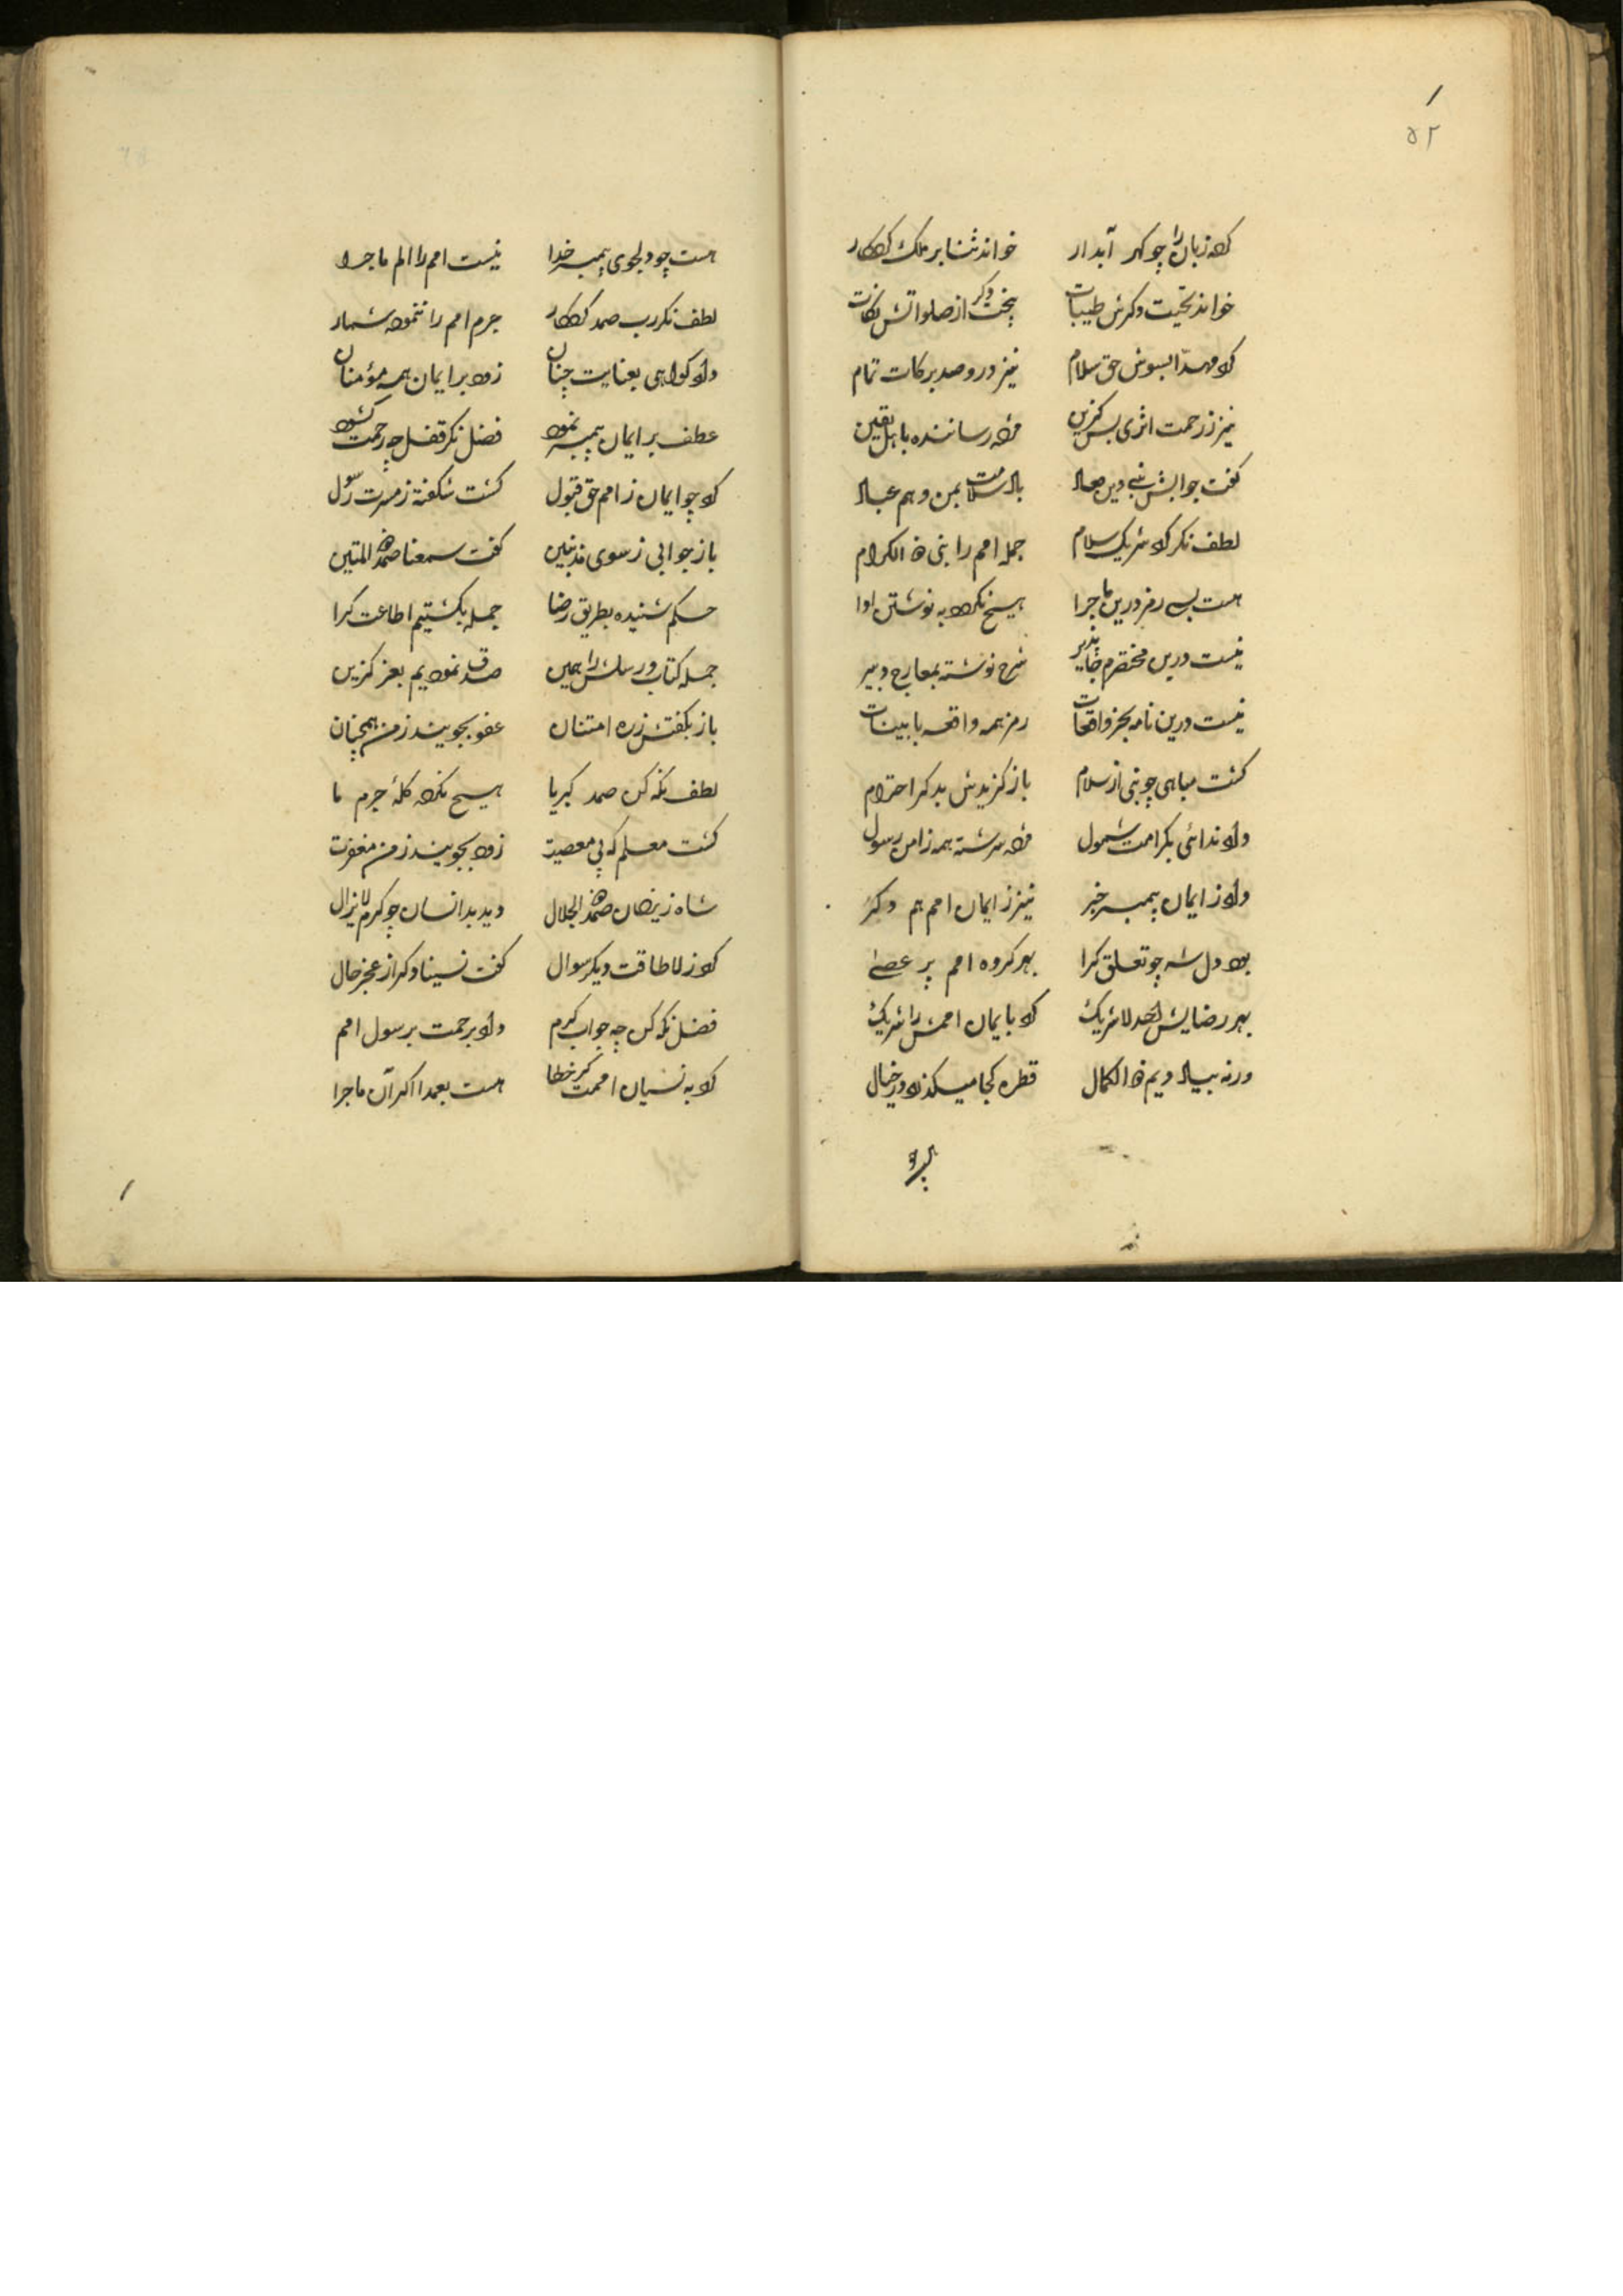 ۵۲
کرد زبان را چو گهر آبدار خواند ثنا بر ملک کردگار
خواند تحیت دگرش طیبات پخت دگر از صلواتش نکات
کرد مهدا بسویش حق سلام نیز درو صد برکات تمام
نیز ز رحمت اثری بس گزین مژده رساننده باهل یقین
گفت جوابش نبی دین معاد باد سلامت بمن و هم عباد
لطف نگر کرد شریک سلام جمله امم را نبی ذو الکرام
هست بسی رمز درین ماجرا هیچ نکرده به نوشتن ادا
نیست درین مختصرم جاپذیر شرح نوشته بمعارج دبیر
نیست درین نامه بجز واقعات رمز همه واقعه با بینات
گشت مباهی چو نبی از سلام باز گزیدش بدگر احترام
داد ندائی بکرامت شمول مژده سرشته همه ز امن رسول
داد ز ایمان پیمبر خبر نیز ز ایمان امم هم دگر
بود دل شه چو تعلق گرا بهر گروه امم پر عصی
بهر رضایش احد لا شریک کرد بایمان اممش را شریک
ورنه بیاد دیم ذو الکمال قطره کجا میگذرد در خیال
هست چو دلجوی پیمبر خدا نیست امم را الم ماجرا
لطف نگر رب صمد کردگار جرم امم را ننموده شمار
داد گواهی بعنایت چنان زود بر ایمان همه مؤمنان
عطف بر ایمان پیمبر نمود فضل نگر قفل چه رحمت گشود
کرد چو ایمان ز امم حق قبول گشت شگفته ز مسرت رسول
باز جوابی ز سوی مذنبین گفت سمعنا صمد ذو المتین
حکم شنیده بطریق رضا جمله بگشتیم اطاعت گرا
جمله کتاب و رسلش را همین صدق نمودیم بعز گزین
باز بگفتش ز ره امتنان عفو بجویند ز من همچنان
لطف نگه کن صمد کبریا هیچ نکرده گله جرم ما
گشت معلم که پی معصیت زود بجویند ز من مغفرت
شاه ز فیضان صمد ذو الجلال دید بدانسان چو کرم لایزال
کرد ز لا طاقت دیگر سوال گفت نسینا دگر از عجز حال
فضل نگه کن چه جواب کرم داد برحمت برسول امم
کرد به نسیان اممت گر خطا هست بعمدا اگر آن ماجرا